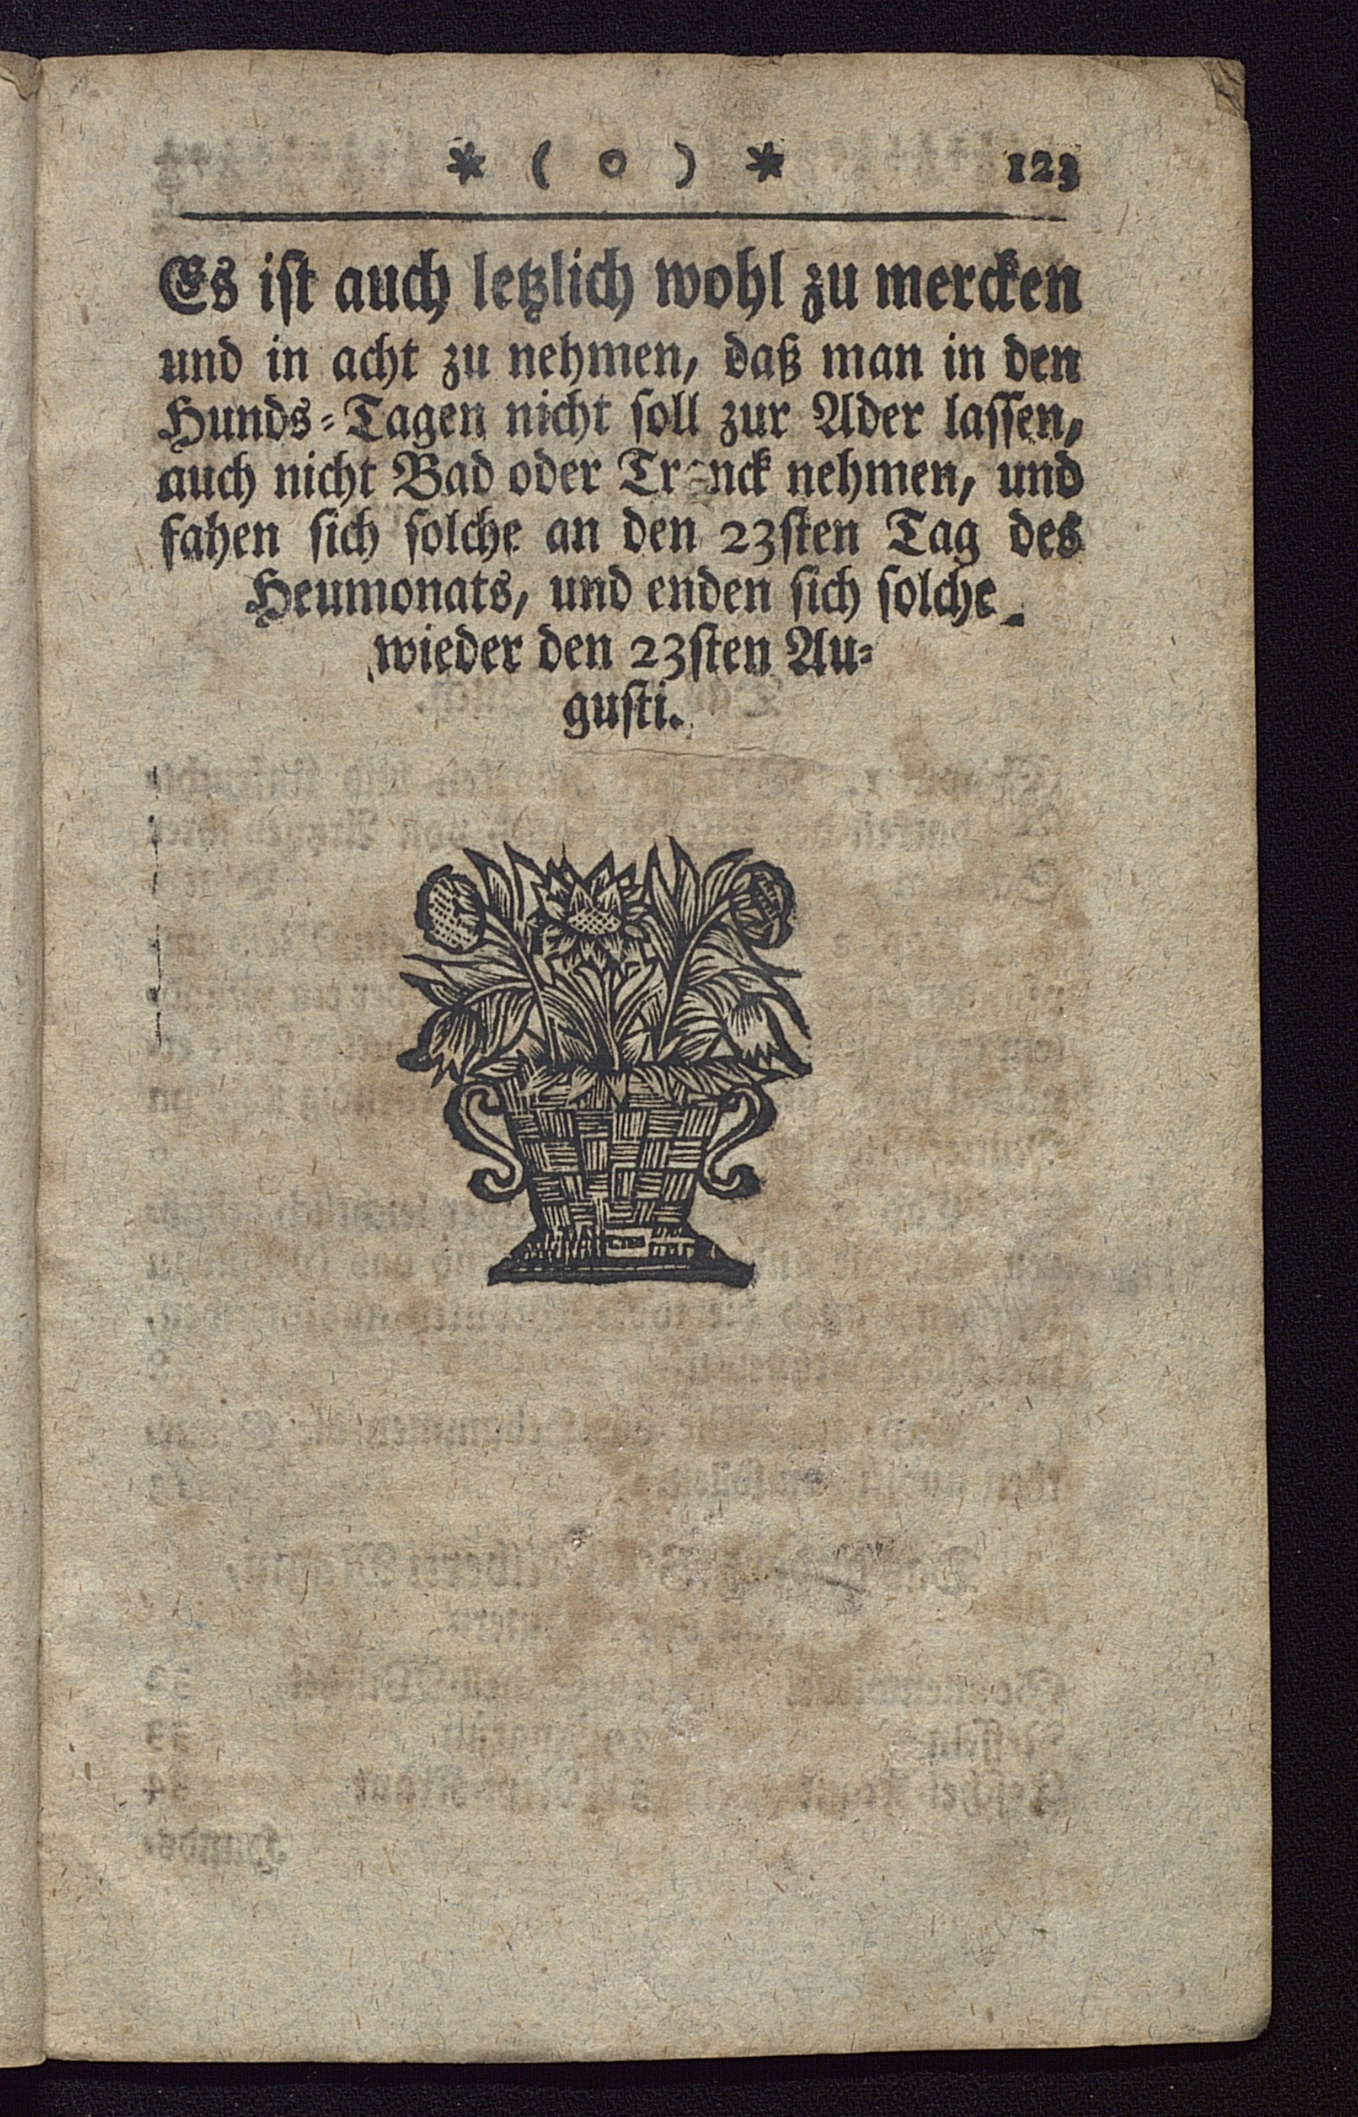 * ( o ) * 123
Es ist auch letzlich wohl zu mercken
und in acht zu nehmen, daß man in den
Hunds-Tagen nicht soll zur Ader lassen,
auch nicht Bad oder Tranck nehmen, und
fahen sich solche an den 23sten Tag des
Heumonats, und enden sich solche
wieder den 23sten Au-
gusti.